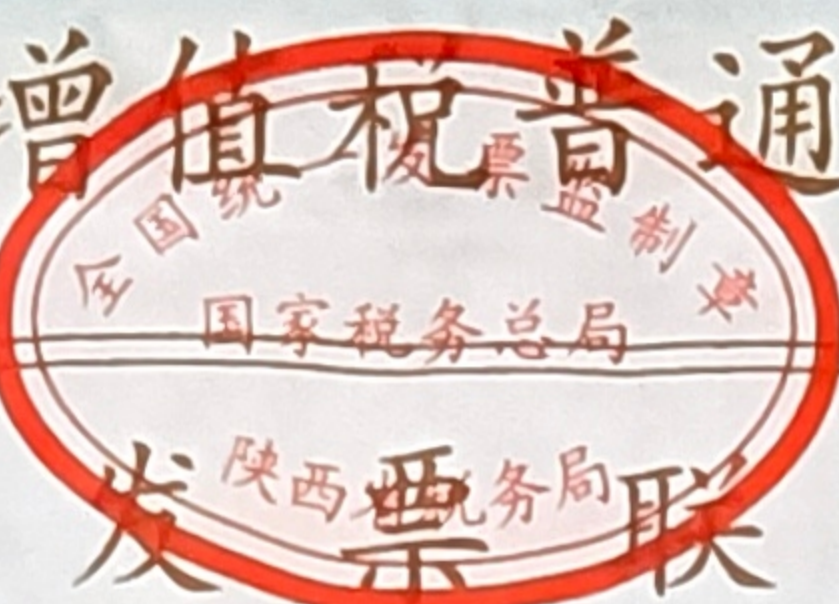 增值税普通
全国统一发票监制章
国家税务总局
陕西省税务局
发票联